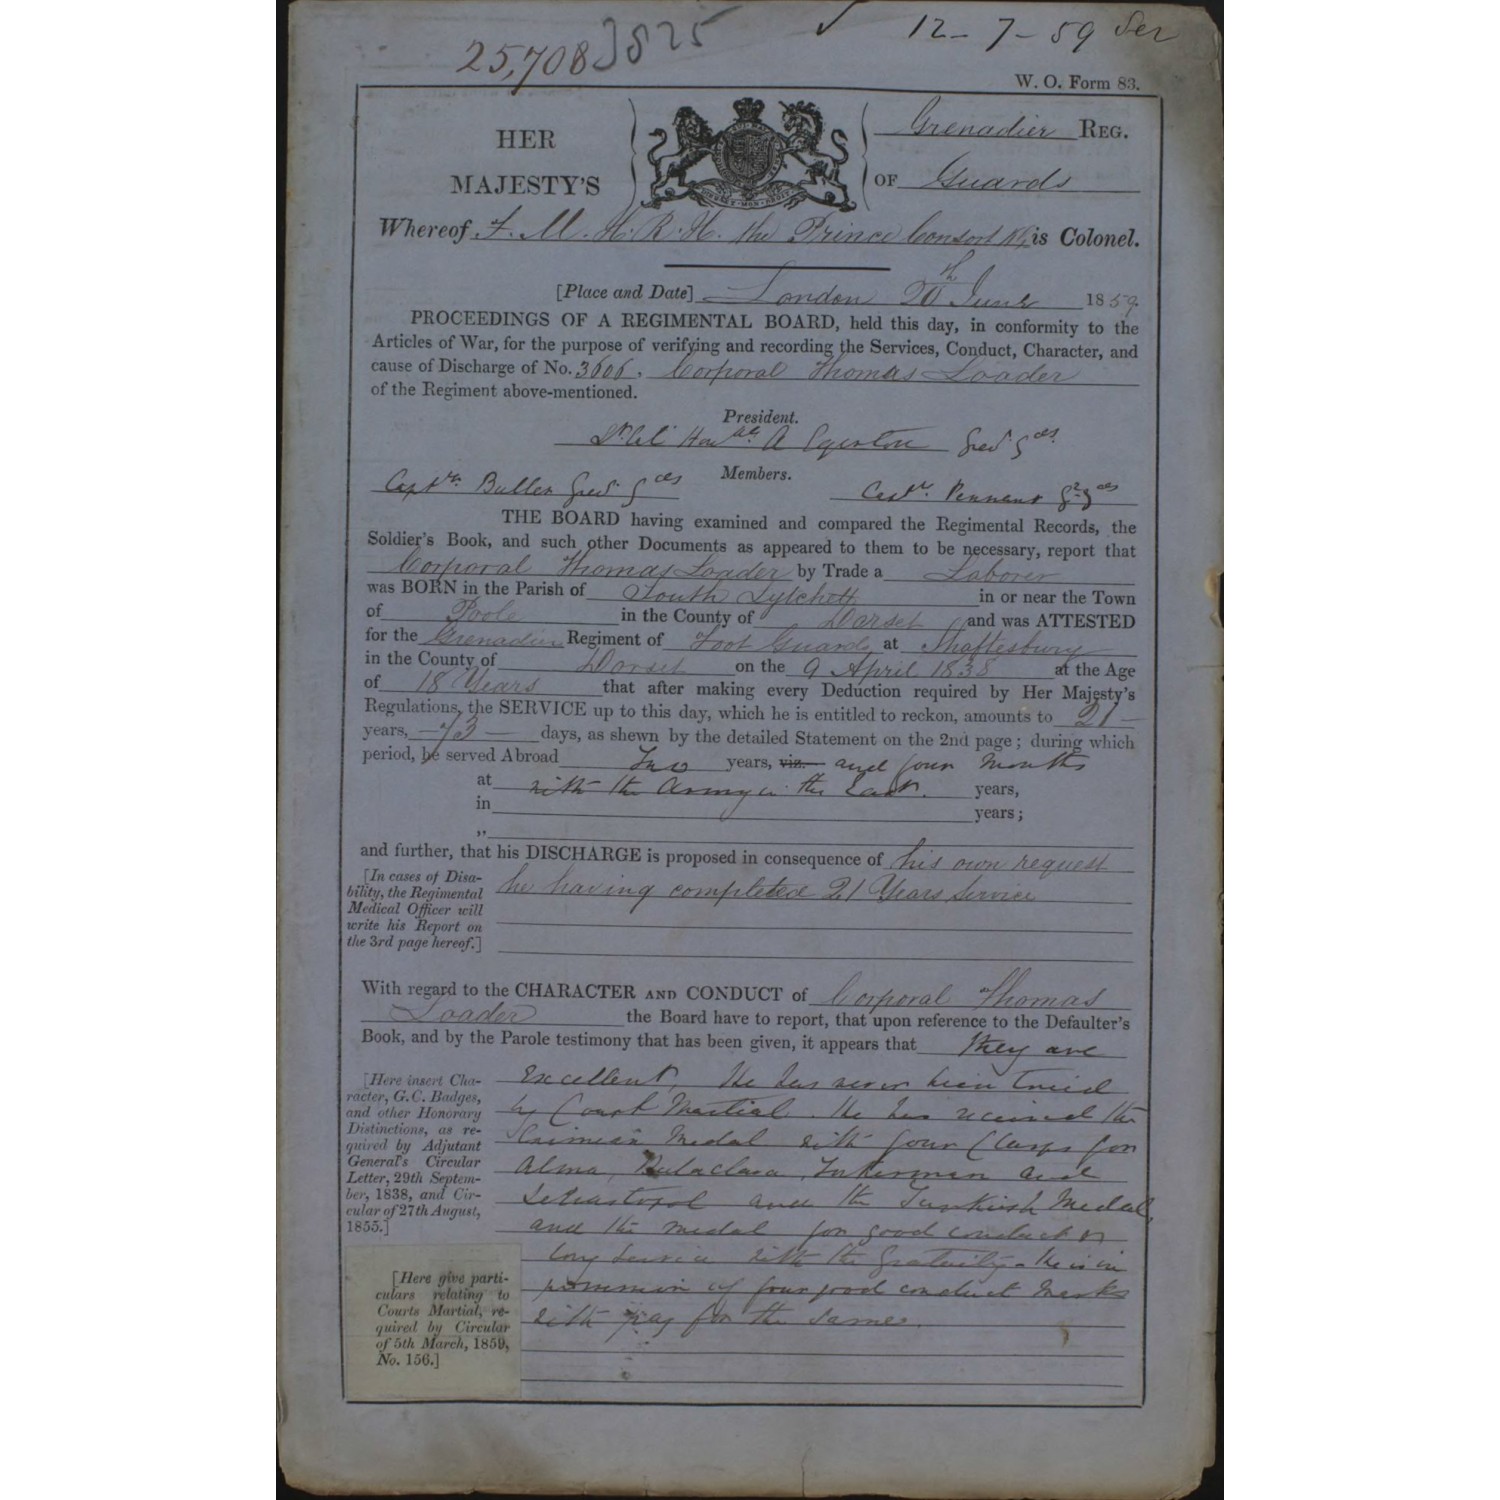 25,708 3825 12-7-59 Ser
W. O. Form 83.
HER
MAJESTY'S
Grenadier REG.
OF Guards
Whereof F. M. H. R. H. the Prince Consort KG is Colonel.
[Place and Date] London 20th June 1859.
PROCEEDINGS OF A REGIMENTAL BOARD, held this day, in conformity to the
Articles of War, for the purpose of verifying and recording the Services, Conduct, Character, and
cause of Discharge of No. 3606. Corporal Thomas Loader
of the Regiment above-mentioned.
President.
Lt Col Honble A Egerton Gren Gds
Members.
Captn. Buller Gren Gds
Captn. Pennant Gr Gds
THE BOARD having examined and compared the Regimental Records, the
Soldier's Book, and such other Documents as appeared to them to be necessary, report that
Corporal Thomas Loader by Trade a Laborer
was BORN in the Parish of South Lytchett in or near the Town
of Poole in the County of Dorset and was ATTESTED
for the Grenadier Regiment of Foot Guards at Shaftesbury
in the County of Dorset on the 9 April 1838 at the Age
of 18 Years that after making every Deduction required by Her Majesty's
Regulations, the SERVICE up to this day, which he is entitled to reckon, amounts to 21 -
years, - 73 - days, as shewn by the detailed Statement on the 2nd page; during which
period, he served Abroad Two years, viz. and four months
at with the Army in the East. years,
in years;
"
and further, that his DISCHARGE is proposed in consequence of his own request
he having completed 21 Years Service
[In cases of Disa-
bility, the Regimental
Medical Officer will
write his Report on
the 3rd page hereof.]
With regard to the CHARACTER AND CONDUCT of Corporal Thomas
Loader the Board have to report, that upon reference to the Defaulter's
Book, and by the Parole testimony that has been given, it appears that they are
[Here insert Cha-
racter, G. C. Badges,
and other Honorary
Distinctions, as re-
quired by Adjutant
General's Circular
Letter, 29th Septem-
ber, 1838, and Cir-
cular of 27th August,
1855.]
Excellent, He has never been tried
by Court Martial. He has received the
Crimean Medal with four Clasps for
Alma, Balaclava, Inkerman and
Sebastopol and the Turkish Medal,
and the medal for good conduct &
long service with the Gratuity - He is in
possession of four good conduct Marks
with pay for the same.
[Here give parti-
culars relating to
Courts Martial, re-
quired by Circular
of 5th March, 1859,
No. 156.]